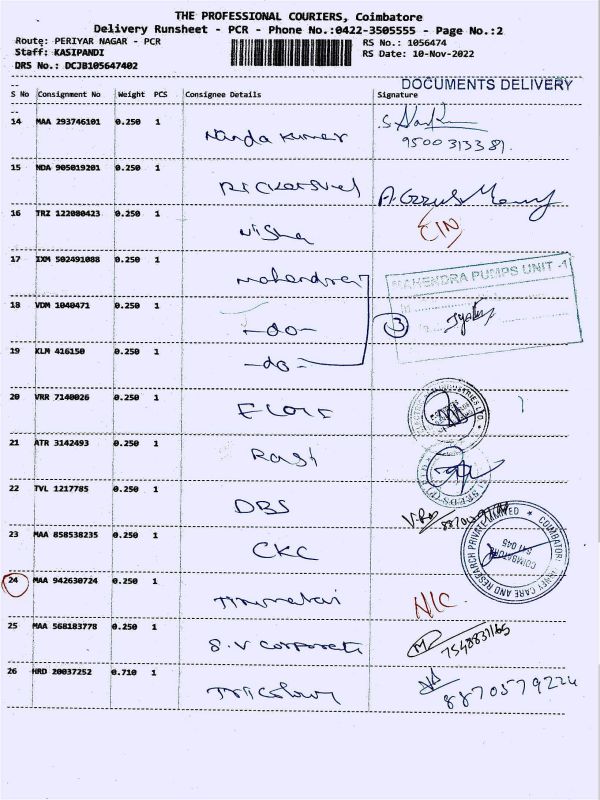 THE PROFESSIONAL COURIERS, Coimbatore
Delivery Runsheet - PCR - Phone No.:0422-3505555 - Page No.:2
Route: PERIYAR NAGAR - PCR
RS No.: 1056474
Staff: KASIPANDI
RS Date: 10-Nov-2022
DRS No.: DCJB105647402
DOCUMENTS DELIVERY
S No Consignment No Weight PCS Consignee Details Signature
14 MAA 293746101 0.250 1 Nanda Kumar
9500313381.
15 NDA 905019201 0.250 1
16 TRZ 122000423 0.250 1 Nisha CIN
17 IXM 502491088 0.250 1 Mahendra
MAHENDRA PUMPS UNIT -1
18 VDM 1040471 0.250 1 -do- 3
19 KLM 416150 0.250 1 -do-
20 VRR 7140026 0.250 1
21 ATR 3142493 0.250 1 Rasi
22 TVL 1217785 0.250 1 DBS
23 MAA 858538235 0.250 1 CKC
24 MAA 942630724 0.250 1 Tirumalai NIC
25 MAA 568183778 0.250 1 S.V Corporate
7548831165
26 HRD 20037252 0.710 1 Tricolour
8870579224